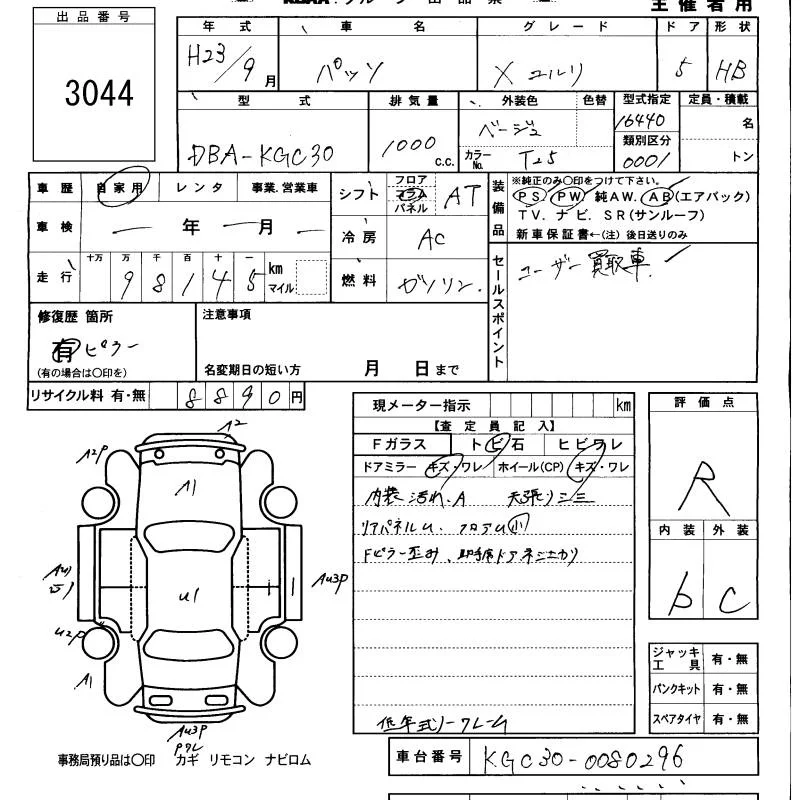 出品番号
3044
主催者用
年式 車名 グレード ドア 形状
H23/9月 パッソ X ユルリ 5 HB
型式 排気量 外装色 色替 型式指定 定員・積載
DBA-KGC30 1000 c.c. ベージュ 16440 名
カラーNo. T25 類別区分 0001 トン
車歴 自家用 レンタ 事業.営業車
車検 ー年ー月ー
走行 十万 万 千 百 十 一
98145 km マイル
シフト フロア コラム パネル AT
冷房 AC
燃料 ガソリン
装備品
※純正のみ〇印をつけて下さい。
PS PW 純AW. AB(エアバック)
TV. ナビ. SR(サンルーフ)
新車保証書←(注) 後日送りのみ
セールスポイント
ユーザー買取車
修復歴 箇所
有 ピラー
(有の場合は〇印を)
注意事項
名変期日の短い方 月 日まで
リサイクル料 有・無 8890円
現メーター指示 km
【査定員記入】
Fガラス トビ石 ヒビワレ
ドアミラー キズ・ワレ ホイール(CP) キズ・ワレ
内装 汚れ.A 天張りシミ
リアパネルU. フロアU 小
Fピラー歪み.助手席ドアネジユガリ
低年式ノークレーム
評価点
R
内装 外装
b C
ジャッキ工具 有・無
パンクキット 有・無
スペアタイヤ 有・無
A2
A2P
A1
U1
AU3P
U2P
A1
AU3P
Pワレ
事務局預り品は〇印 カギ リモコン ナビロム
車台番号 KGC30-0080296